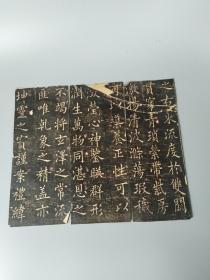 之右東流度於雙闕
貫穿青瑣縈帶紫房
激揚清波滌蕩瑕穢
可以導養正性可以
澂瑩心神鑒暎群形
潤生萬物同湛恩之
不竭將玄澤之常流
匪唯乾象之精蓋亦
坤靈之寶謹案禮緯